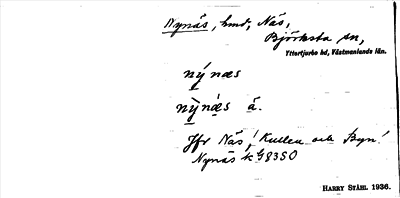 Nynäs, hmd, Näs,
Björksta sn,
Yttertjurbo hd, Västmanlands län.
nýnæs
nỳnǽs á.
Jfr Näs, Kullen och Byn!
Nynäs k G8350
HARRY STÅHL 1936.